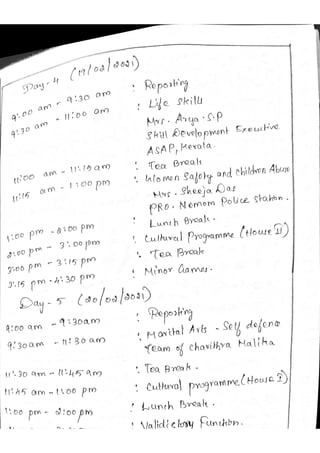 Day-4 (19/02/2021)
9:00 am - 9:30 am : Reporting
9:30 am - 11:00 am : Life Skill
Mrs. Arya. S.P
Skill Development Executive
ASAP, Kerala.
11:00 am - 11:15 am : Tea Break
11:15 am - 1:00 pm : Women Safety and Children Abuse
Mrs. Sheeja Das
PRO. Nemom Police Station.
1:00 pm - 2:00 pm : Lunch Break.
2:00 pm - 3:00 pm : Cultural Programme (House II)
3:00 pm - 3:15 pm : Tea Break
3:15 pm - 4:30 pm : Minor Games.
Day-5 (20/02/2021)
9:00 am - 9:30am : Reporting
9:30am - 11:30 am : Marital Arts - Self defence
Team of Charithra Malika
11:30 am - 11:45 am : Tea Break.
11:45 am - 1:00 pm : Cultural programme (House I)
1:00 pm - 2:00pm : Lunch Break.
: Validictory Function.